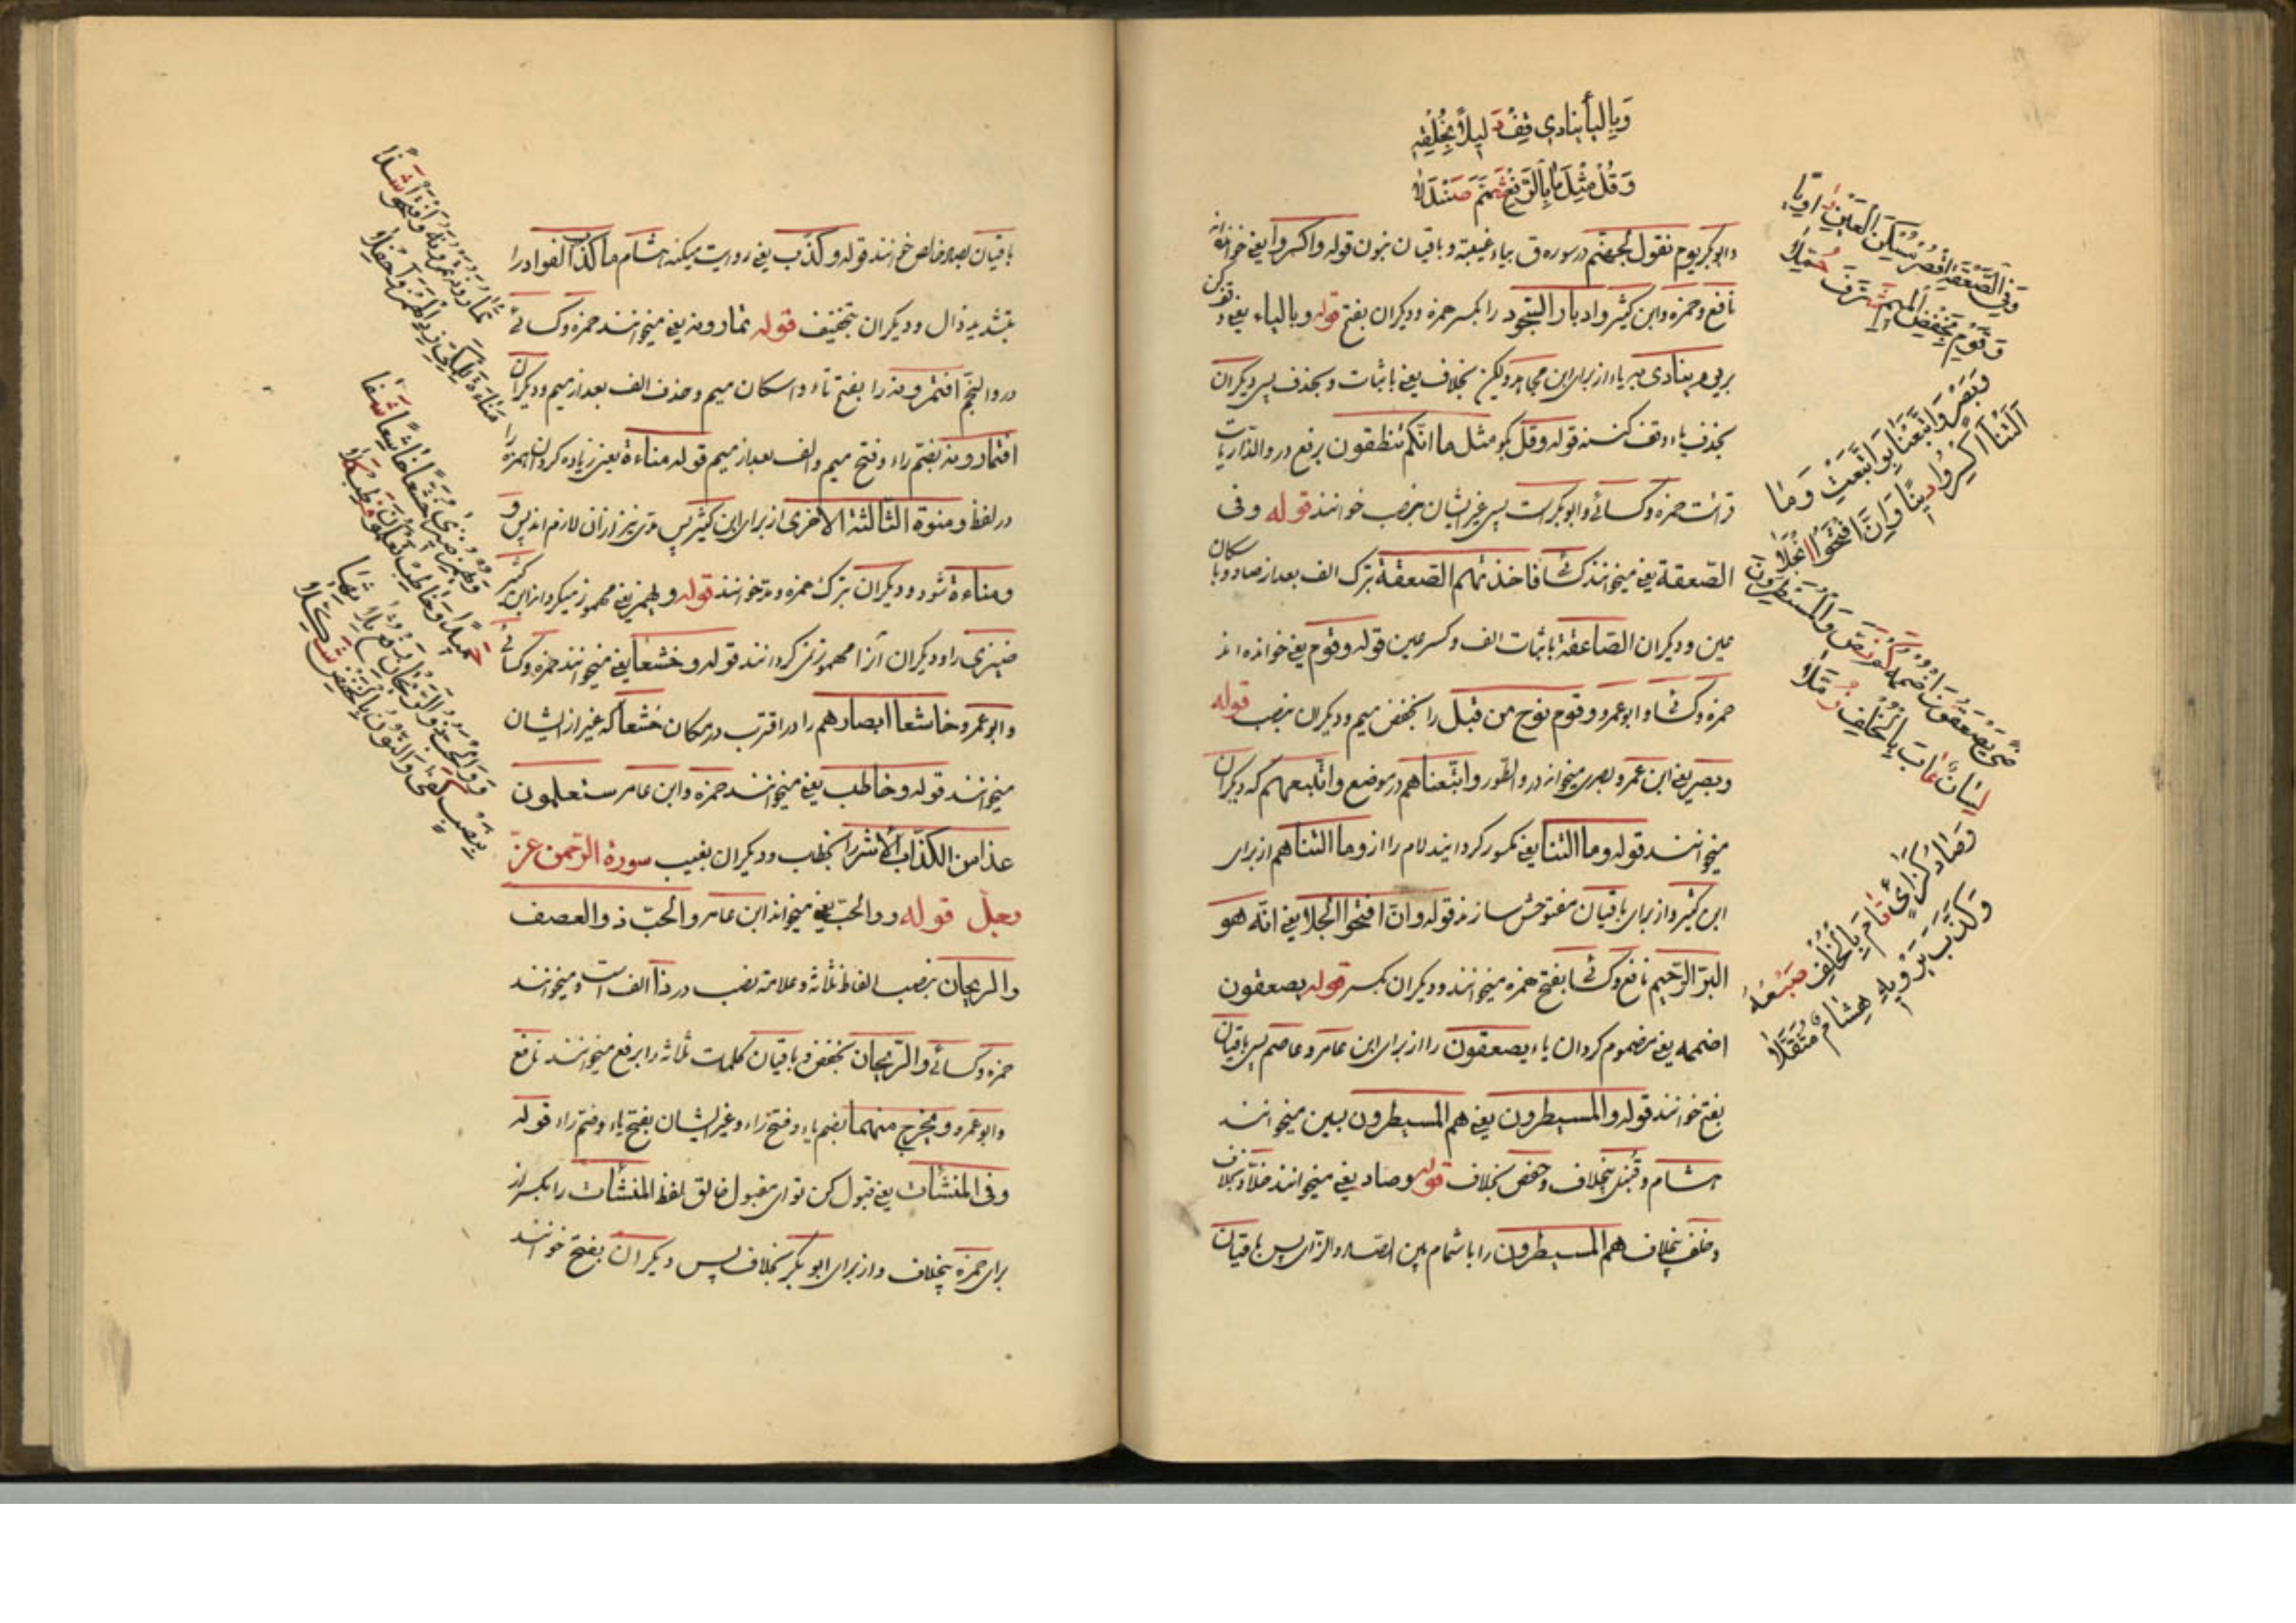 وَبِاليَا يُنَادِي قِفْ دَلِيلًا بِخُلْفِهِ
وَقُلْ مِثْلَ مَا بِالرَّفْعِ شَمَّمَ صَنْدَلَا
وابوبکر یوم نقول لجهنم در سوره ق بیاء غیبة و باقیان بنون قوله واکسروا یعنی خوانده‌اند
نافع وحمزه وابن کثیر وادبار السجود را بکسر همزه ودیکران بفتح قوله وبالیاء یعنی وقف کن
بر ینادی بیاء از برای ابن کثیر لیکن بخلاف یعنی باثبات وبحذف پس دیکران
بحذف یاء وقف کنند قوله وقل بکو مثل ما انکم تنطقون برفع در والذاریات
قرائت حمزه وکسائی وابوبکر است پس غیر ایشان بنصب خوانند قوله وفی
الصعقة یعنی میخوانند کسائی فاخذتهم الصعقة بترک الف بعد از صاد وباسکان
عین ودیکران الصاعقة باثبات الف وکسر عین قوله وقوم یعنی خوانده اند
حمزه وکسائی وابوعمرو وقوم نوح من قبل را بخفض میم ودیکران بنصب قوله
وبصر یعنی ابن عمرو بصری میخواند در والطور واتبعناهم در موضع واتبعتهم که دیکران
میخوانند قوله وما التنا یعنی مکسور کردانید لام را از وما التناهم از برای
ابن کثیر واز برای باقیان مفتوحش سازند قوله وان افتحوا الجلا یعنی انه هو
البر الرحیم نافع وکسائی بفتح همزه میخوانند ودیکران بکسر قوله یصعقون
اضممه یعنی مضموم کردان یاء یصعقون را از برای ابن عامر وعاصم پس باقیان
بفتح خوانند قوله والمسیطرون یعنی هم المسیطرون بسین میخوانند
هشام وقنبل بخلاف وحفص بخلاف قوله وصاد یعنی میخوانند خلاد بخلاف
وخلف بخلاف هم المسیطرون را باشمام بین الصاد والزای پس باقیان
وَفِي الصَّعْقَةِ اقْصُرْ مُسْكِنَ الْعَيْنِ رَاوِيًا
وَقَوْمَ بِخَفْضِ الْمِيمِ شَرَّفَ حُمَّلَا
وَبَصْرٍ وَأَتْبَعْنَا بِوَاتَّبَعَتْ وَمَا
أَلَتْنَا اكْسِرُوا دِينًا وَإِنَّ افْتَحُوا الْجَلَا
رِضًى يَصْعَقُونَ اضْمُمْهُ كَمْ نَصَّ وَالْمُسَيْطِرُونَ
لِسَانٌ عَابَ بِالْخُلْفِ زُمَّلَا
وَصَادٌ كَزَايٍ قَامَ بِالْخُلْفِ ضَبْعُهُ
وَكَذَّبَ يَرْوِيهِ هِشَامٌ مُثَقَّلَا
باقیان بصاد خالص خوانند قوله وکذب یعنی روایت میکند هشام ما کذب الفواد را
بتشدید ذال ودیکران بتخفیف قوله تمارونه یعنی میخوانند حمزه وکسائی
در والنجم افتمرونه را بفتح تاء واسکان میم وحذف الف بعد از میم ودیکران
افتمارونه بضم تاء وفتح میم والف بعد از میم قوله مناءة یعنی زیاده کردان همزه را
در لفظ ومنوة الثالثة الاخری از برای ابن کثیر پس مد نیز از آن لازم اید پس
ومناءة شود ودیکران بترک همزه ومد خوانند قوله ویهمز یعنی مهموز میکرداند ابن کثیر
ضیزی را ودیکران آنرا مهموز نمیکردانند قوله وخشعا یعنی میخوانند حمزه وکسائی
وابوعمرو خاشعا ابصارهم را در اقتربت در مکان خشعا که غیر از ایشان
میخوانند قوله وخاطب یعنی میخوانند حمزه وابن عامر ستعلمون
غدا من الکذاب الاشر را بخطاب ودیکران بغیب سورة الرحمن عزّ
وجلّ قوله ووالحب یعنی میخواند ابن عامر والحب ذو العصف
والریحان بنصب الفاظ ثلاثه وعلامة نصب در ذا الف است ومیخوانند
حمزه وکسائی والریحان بخفض وباقیان کلمات ثلاثه را برفع میخوانند نافع
وابوعمرو ویخرج منهما بضم یاء وفتح راء وغیر ایشان بفتح یاء وضم راء قوله
وفی المنشآت یعنی قبول کن تو ای مقبول خالق لفظ المنشآت را بکسر از
برای حمزه بیخلاف واز برای ابو بکر بخلاف پس دیکران بفتح خوانند
تُمَارُونَهُ تَمْرُونَهُ وَافْتَحُوا شَذًا
مَنَاءَةَ لِلْمَكِّي زِدِ الْهَمْزَ وَاحْفِلَا
وَيَهْمِزُ ضِيزَى خُشَّعًا خَاشِعًا شَفَا
حَمِيدًا وَخَاطِبْ تَعْلَمُونَ فَطِبْ كَلَا
وَوَالْحَبُّ ذُو الرَّيْحَانُ رَفْعُ ثَلَاثِهَا
بِنَصْبٍ كَفَى وَالنُّونُ بِالْخَفْضِ شُكِّلَا